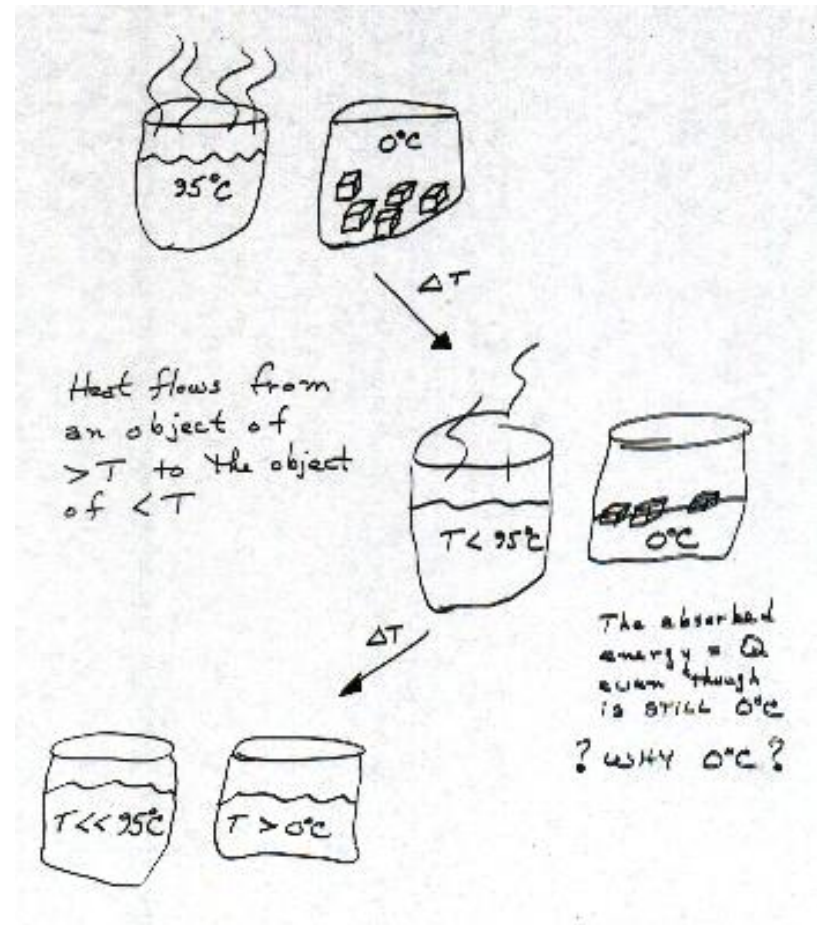 95°C
0°C
ΔT
Heat flows from
an object of
>T to the object
of <T
T < 95°C
0°C
The absorbed
energy = Q
even though
is STILL 0°C
? WHY 0°C ?
ΔT
T << 95°C
T > 0°C